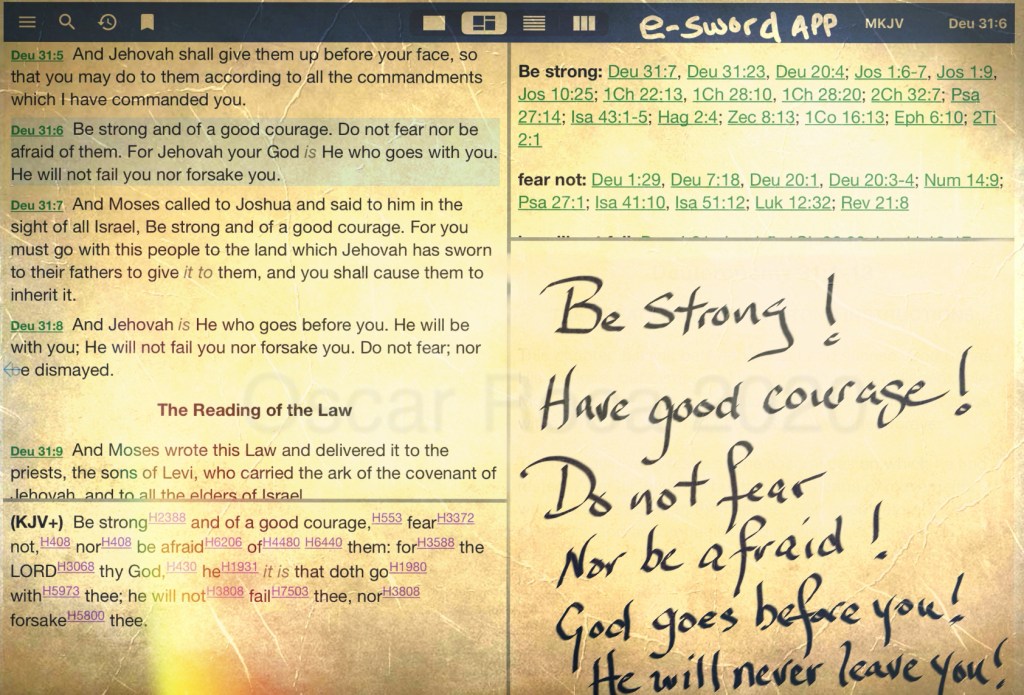 e-Sword APP
MKJV
Deu 31:6
Deu 31:5 And Jehovah shall give them up before your face, so
that you may do to them according to all the commandments
which I have commanded you.
Deu 31:6 Be strong and of a good courage. Do not fear nor be
afraid of them. For Jehovah your God is He who goes with you.
He will not fail you nor forsake you.
Deu 31:7 And Moses called to Joshua and said to him in the
sight of all Israel, Be strong and of a good courage. For you
must go with this people to the land which Jehovah has sworn
to their fathers to give it to them, and you shall cause them to
inherit it.
Deu 31:8 And Jehovah is He who goes before you. He will be
with you; He will not fail you nor forsake you. Do not fear; nor
be dismayed.
The Reading of the Law
Deu 31:9 And Moses wrote this Law and delivered it to the
priests, the sons of Levi, who carried the ark of the covenant of
Jehovah, and to all the elders of Israel
(KJV+) Be strongH2388 and of a good courage,H553 fearH3372
not,H408 norH408 be afraidH6206 ofH4480 H6440 them: forH3588 the
LORDH3068 thy God,H430 heH1931 it is that doth goH1980
withH5973 thee; he will notH3808 failH7503 thee, norH3808
forsakeH5800 thee.
Be strong: Deu 31:7, Deu 31:23, Deu 20:4; Jos 1:6-7, Jos 1:9,
Jos 10:25; 1Ch 22:13, 1Ch 28:10, 1Ch 28:20; 2Ch 32:7; Psa
27:14; Isa 43:1-5; Hag 2:4; Zec 8:13; 1Co 16:13; Eph 6:10; 2Ti
2:1
fear not: Deu 1:29, Deu 7:18, Deu 20:1, Deu 20:3-4; Num 14:9;
Psa 27:1; Isa 41:10, Isa 51:12; Luk 12:32; Rev 21:8
Be Strong!
Have good courage!
Do not fear
Nor be afraid!
God goes before you!
He will never leave you!
Oscar Rosa 2020